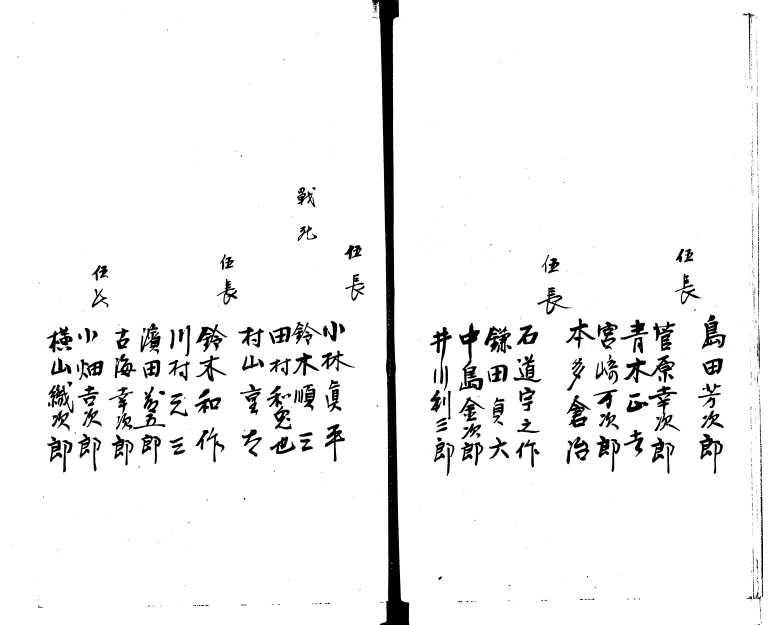 島田芳次郎
伍長 菅原幸次郎
青木正吉
宮崎万次郎
本多倉治
伍長 石道宇之作
鎌田貞六
中島金次郎
井川利三郎
伍長 小林眞平
戦死 鈴木順三
田村和兎也
村山
伍長 鈴木和作
川村元三
濱田 五郎
古海幸次郎
伍長 小畑吉次郎
横山織次郎